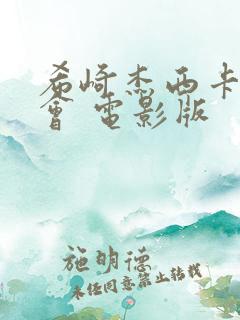 希崎杰西卡
會 電影版
施明德
未经同意禁止转载